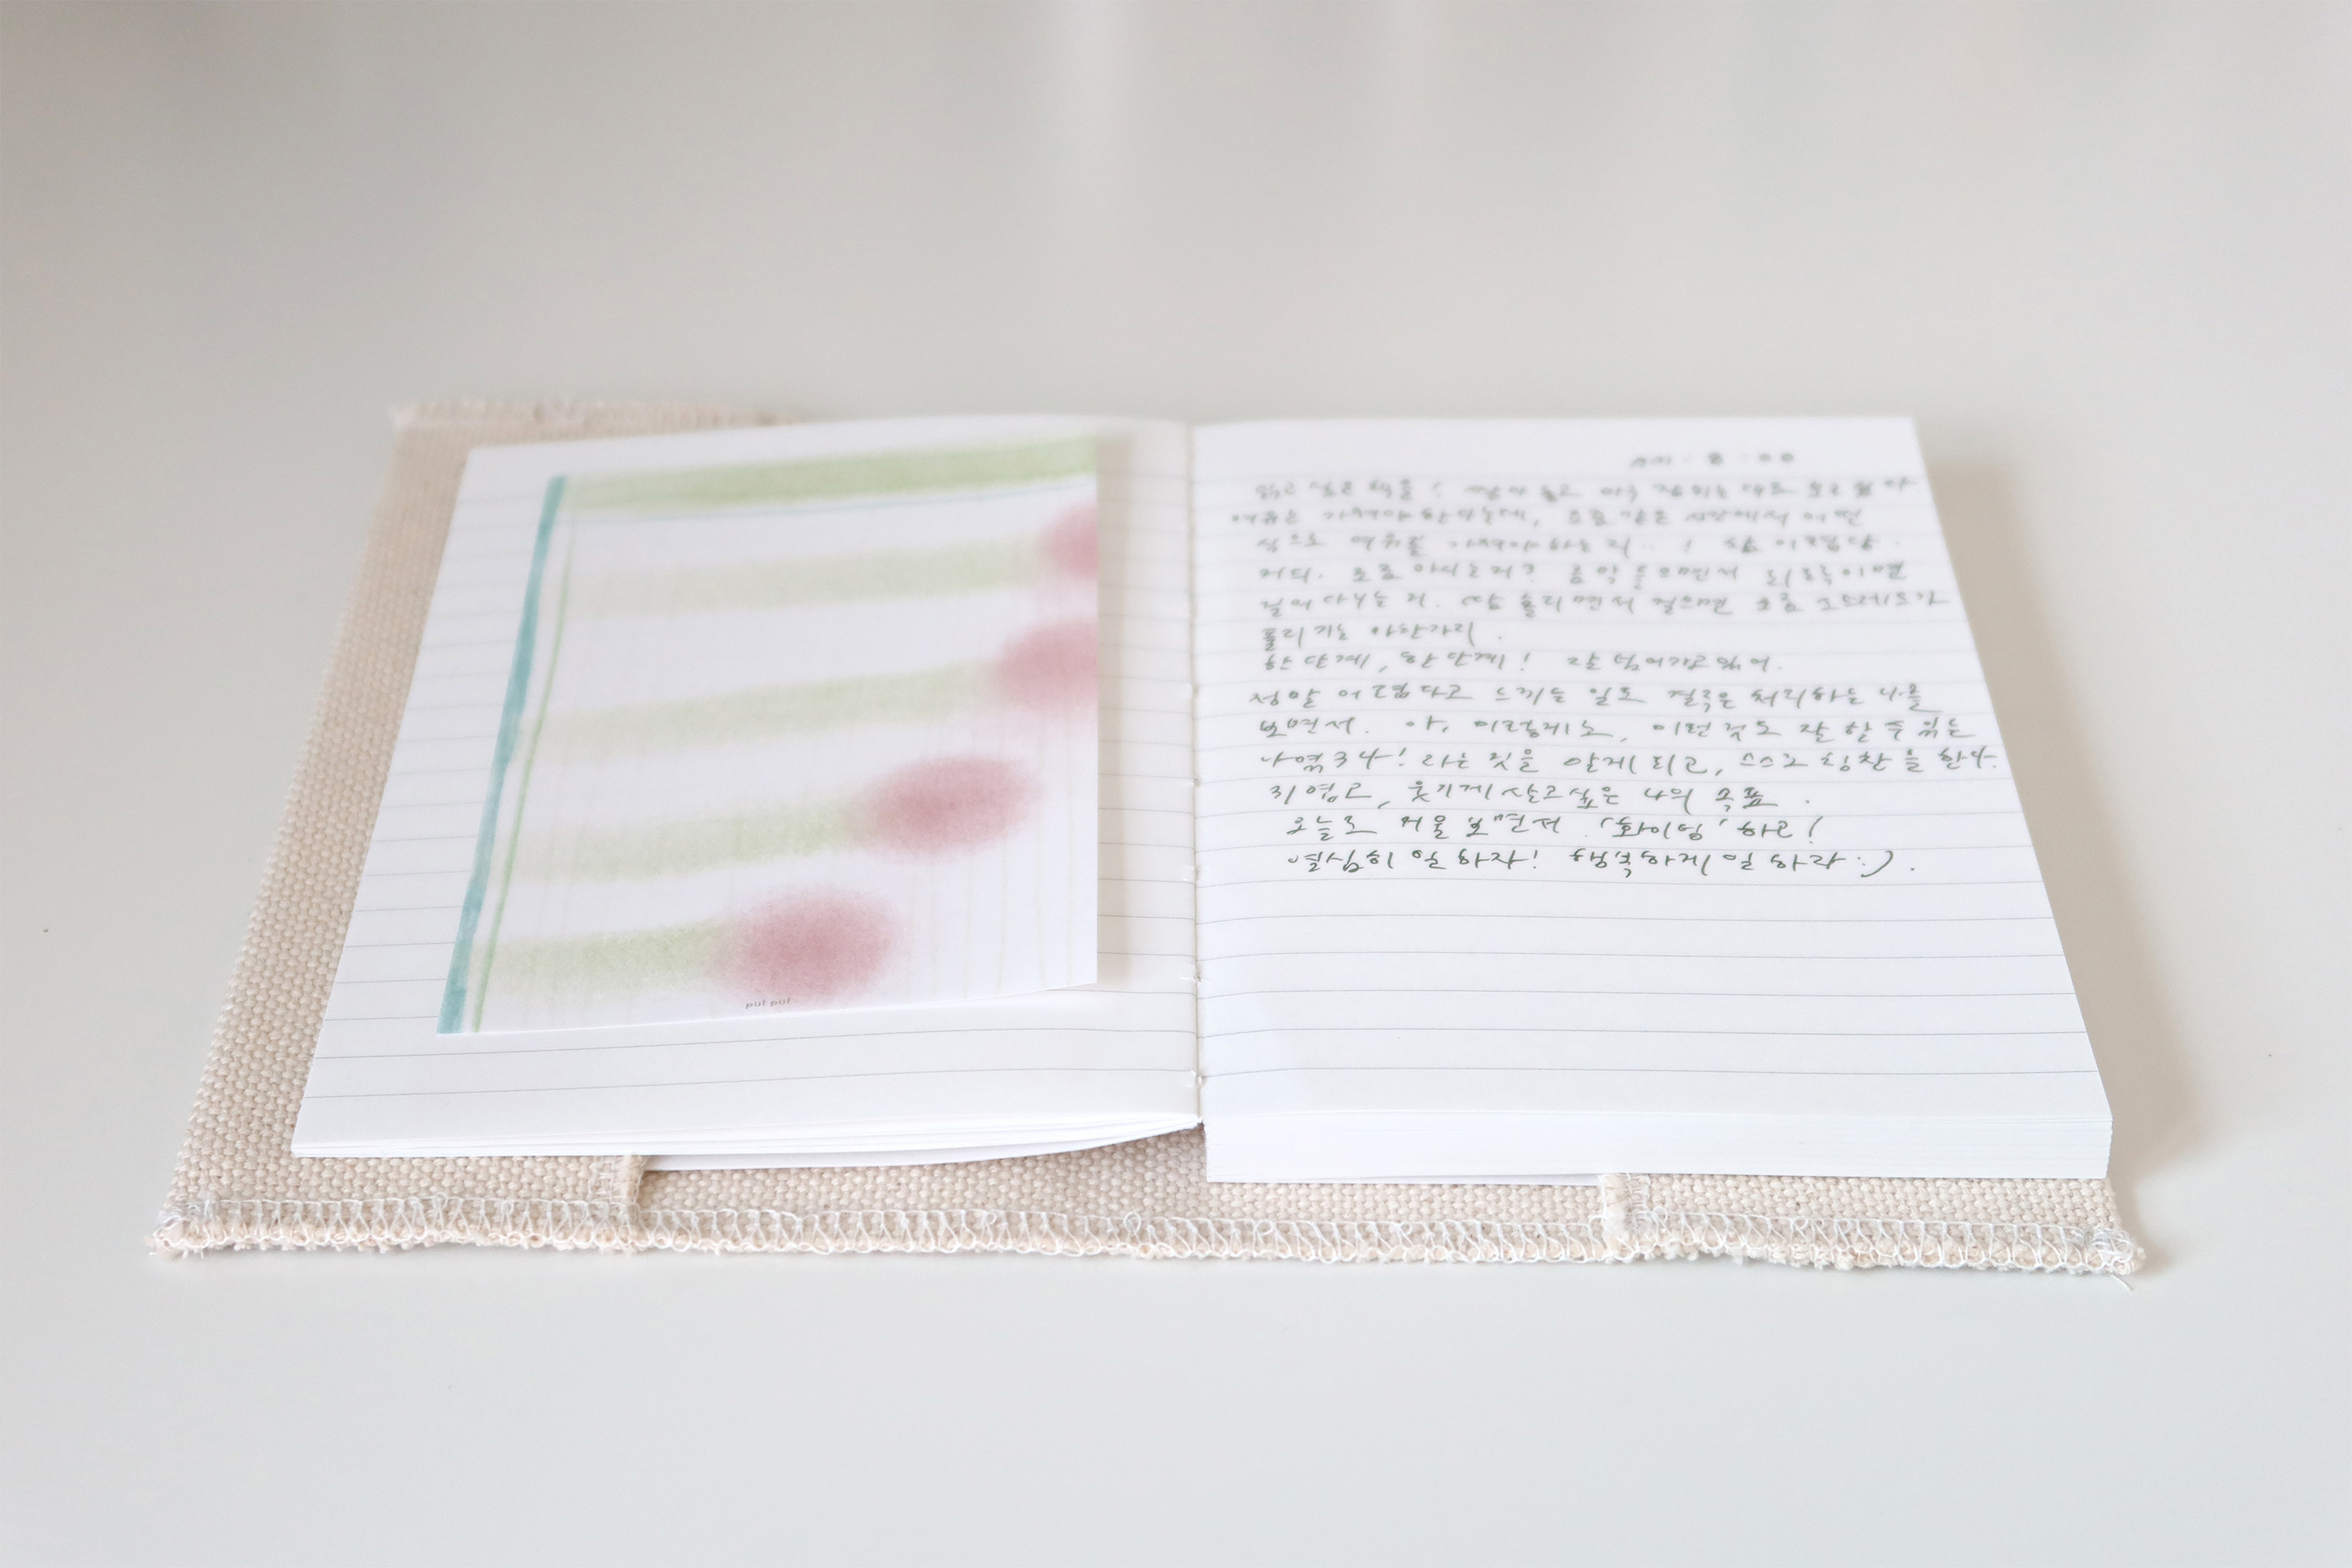 put put
AM . 8 . 00
읽고 싶은 책을 !
여유는 가져야 한다는데, 요즘 같은 시장에서 어떤
식으로 여유를 가져야 하는 지 .. ! 어렵당 .
저의. 요즘 음악 들으면서
걸어 다니는 거. 땀 흘리면서 걸으면 요즘 스트레스가
풀리기는 마찬가지 .
한 단계, 한 단계 ! 잘 넘어가고 있어.
정말 어렵다고 느끼는 일도 결국은 처리하는 나를
보면서. 아, 이렇게도, 이런 것도 잘 할 수 있는
나였구나! 라는 것을 알게 되고, 스스로 칭찬을 한다.
귀엽고, 웃기게 살고싶은 나의 목표 .
오늘도 거울 보면서 '화이팅' 하고 !
열심히 일 하자! 행복하게 일 하라 :) .